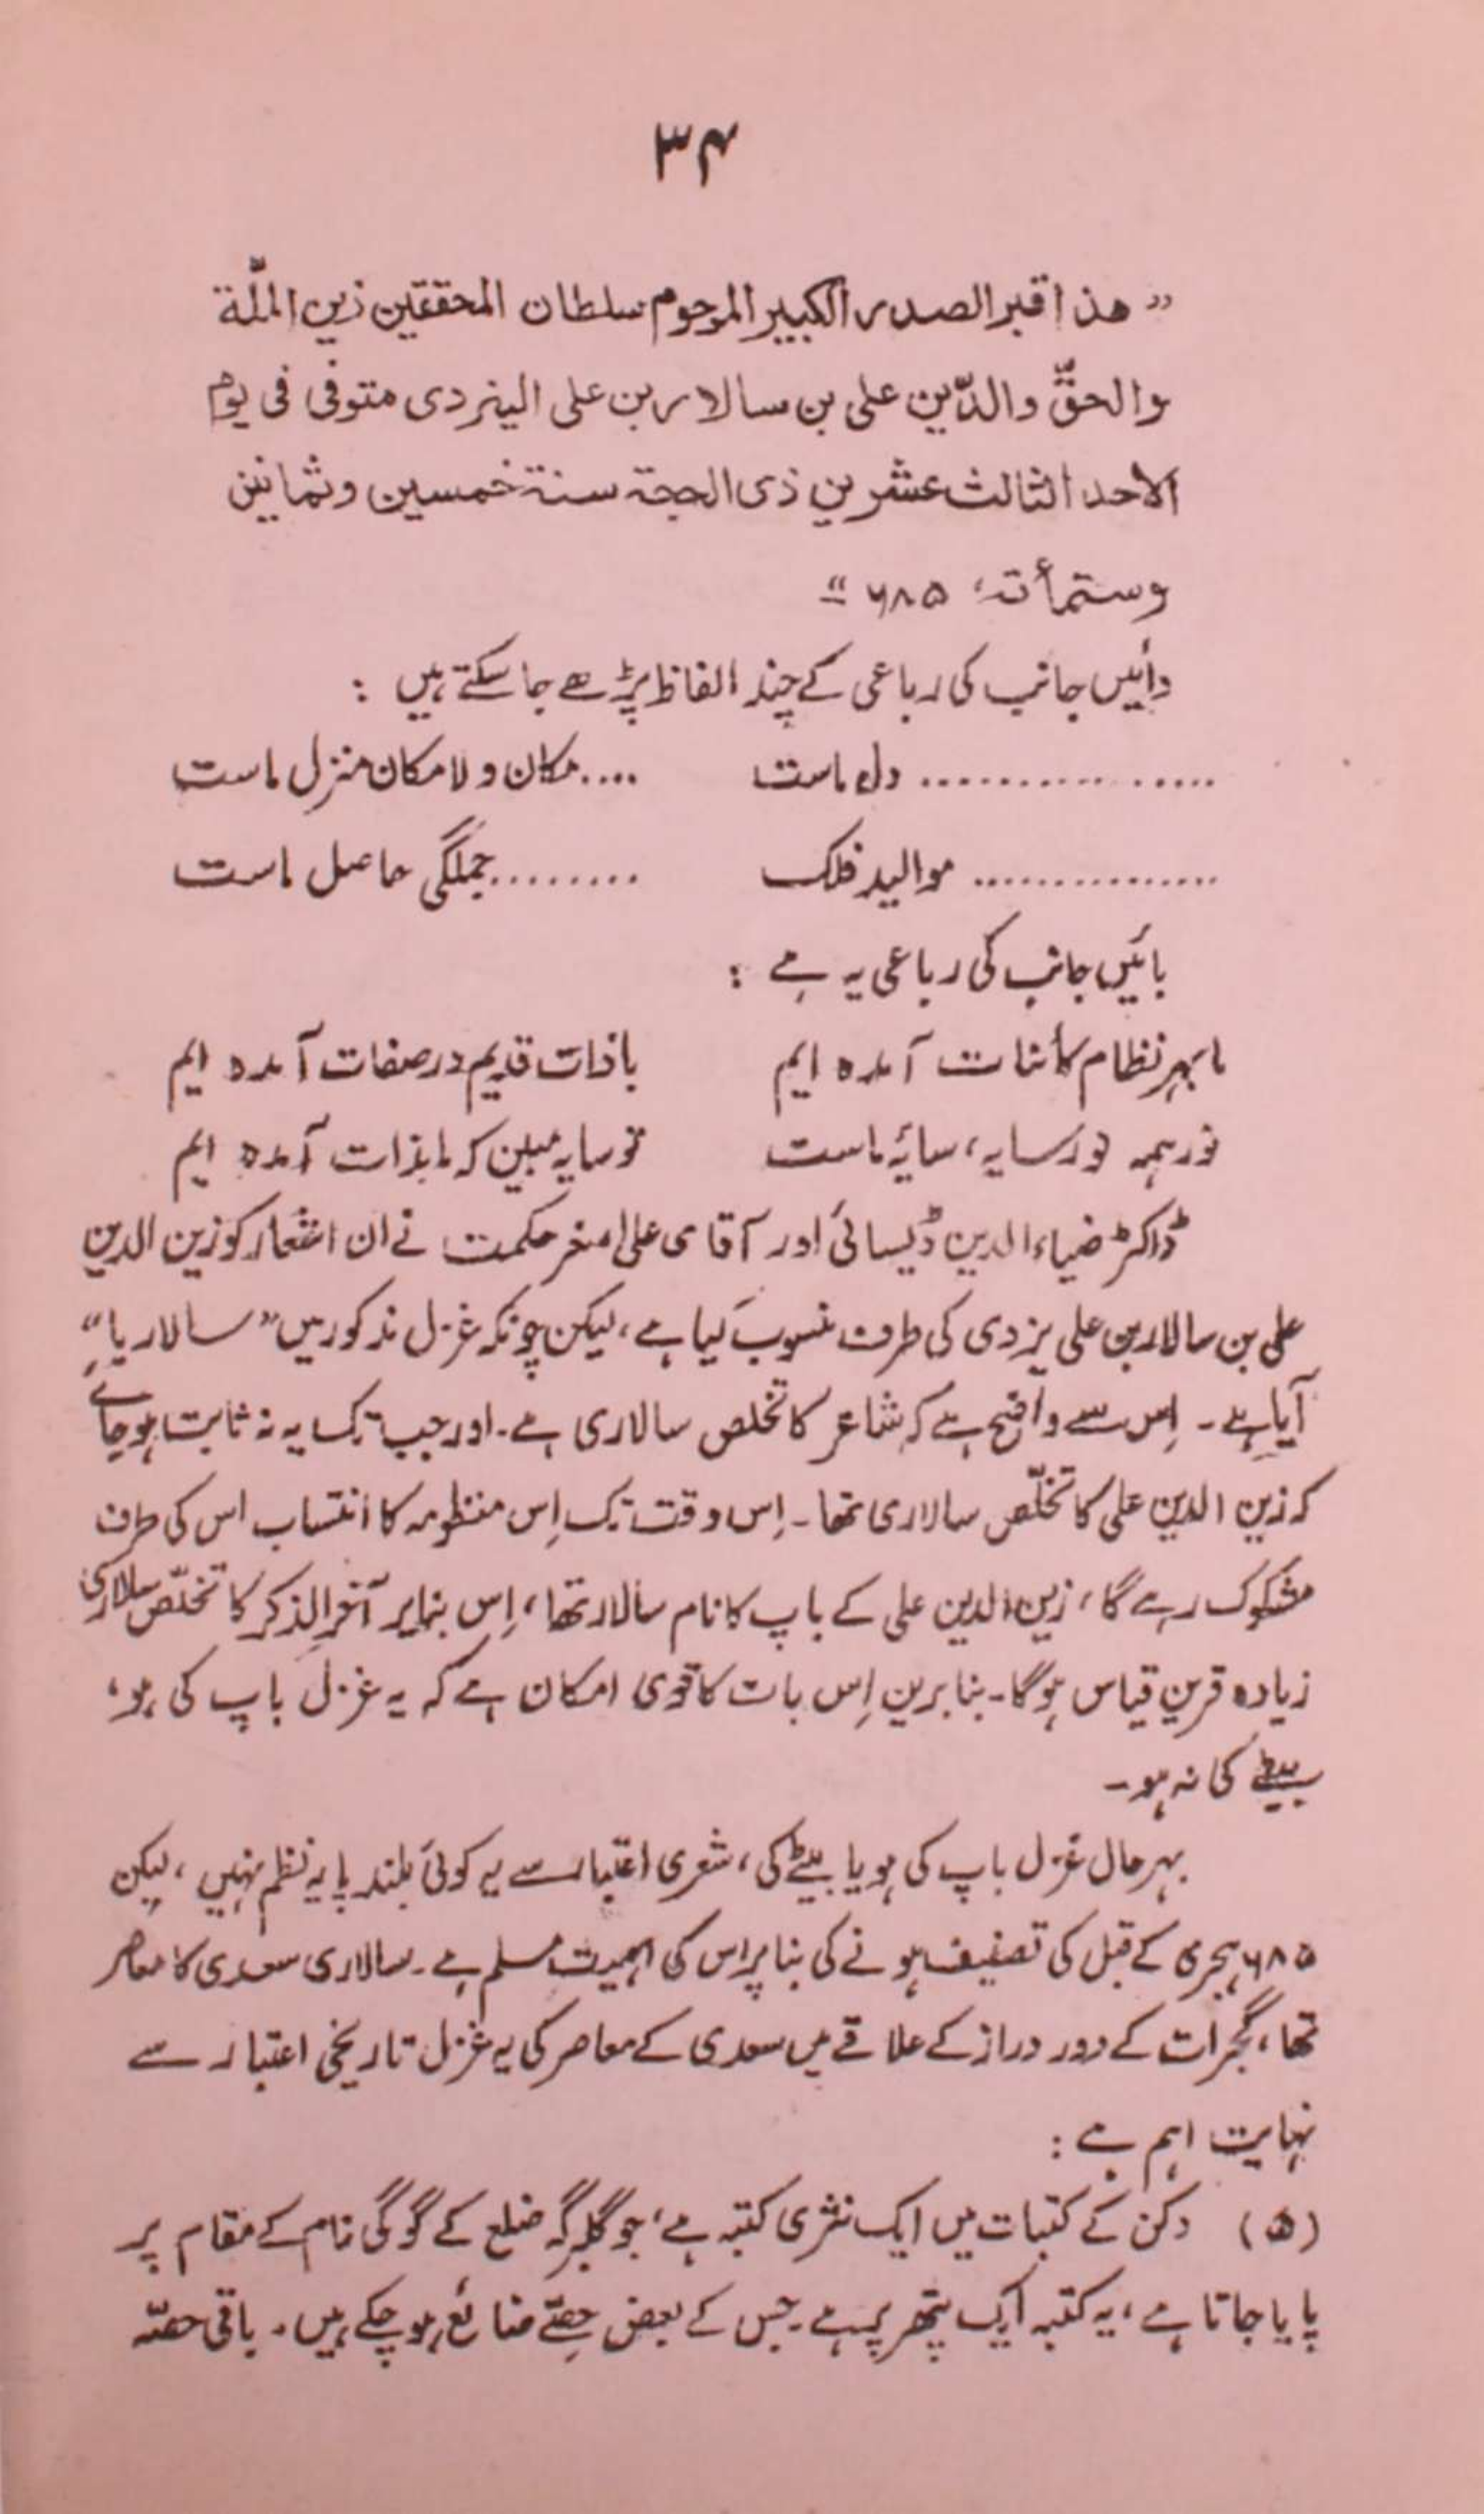 ۳۴
”هذا قبر الصدر الكبير المرحوم سلطان المحققين زين الملّة
والحقّ والدّين على بن سالار بن على اليزدى متوفى فى يوم
الاحد الثالث عشر من ذى الحجة سنة خمسين وثمانين
وستمأتة، ۶۸۵“
دائیں جانب کی رباعی کے چند الفاظ پڑھے جا سکتے ہیں :
................ دل ماست .... مکان و لا مکان منزل ماست
............... موالید فلک ........ جملگی حاصل ماست
بائیں جانب کی رباعی یہ ہے :
ما بہر نظام کائنات آمدہ ایم با ذات قدیم در صفات آمدہ ایم
نور ہمہ نور سایہ، سایۂ ماست تو سایہ مبین کہ ما بذات آمدہ ایم
ڈاکٹر ضیاء الدین ڈیسائی اور آقای علی اصغر حکمت نے ان اشعار کو زین الدین
علی بن سالار بن علی یزدی کی طرف منسوب کیا ہے، لیکن چونکہ غزل مذکور میں ”سالاریا“
آیا ہے۔ اِس سے واضح ہے کہ شاعر کا تخلص سالاری ہے۔ اور جب تک یہ نہ ثابت ہو جائے
کہ زین الدین علی کا تخلّص سالاری تھا۔ اِس وقت تک اِس منظومہ کا انتساب اس کی طرف
مشکوک رہے گا، زین الدین علی کے باپ کا نام سالار تھا، اِس بنا پر آخر الذکر کا تخلّص سالاری
زیادہ قرین قیاس ہوگا۔ بنا بریں اِس بات کا قوی امکان ہے کہ یہ غزل باپ کی ہو،
بیٹے کی نہ ہو۔
بہر حال غزل باپ کی ہو یا بیٹے کی، شعری اعتبار سے یہ کوئی بلند پایہ نظم نہیں، لیکن
۶۸۵ ہجری کے قبل کی تصنیف ہونے کی بنا پر اس کی اہمیت مسلم ہے۔ سالاری سعدی کا معاصر
تھا، گجرات کے دور دراز کے علاقے میں سعدی کے معاصر کی یہ غزل تاریخی اعتبار سے
نہایت اہم ہے :
(۵) دکن کے کتبات میں ایک نثری کتبہ ہے، جو گلبرگہ ضلع کے گوگی نام کے مقام پر
پایا جاتا ہے، یہ کتبہ ایک پتھر پر ہے۔ جس کے بعض حصّے ضائع ہو چکے ہیں۔ باقی حصّہ